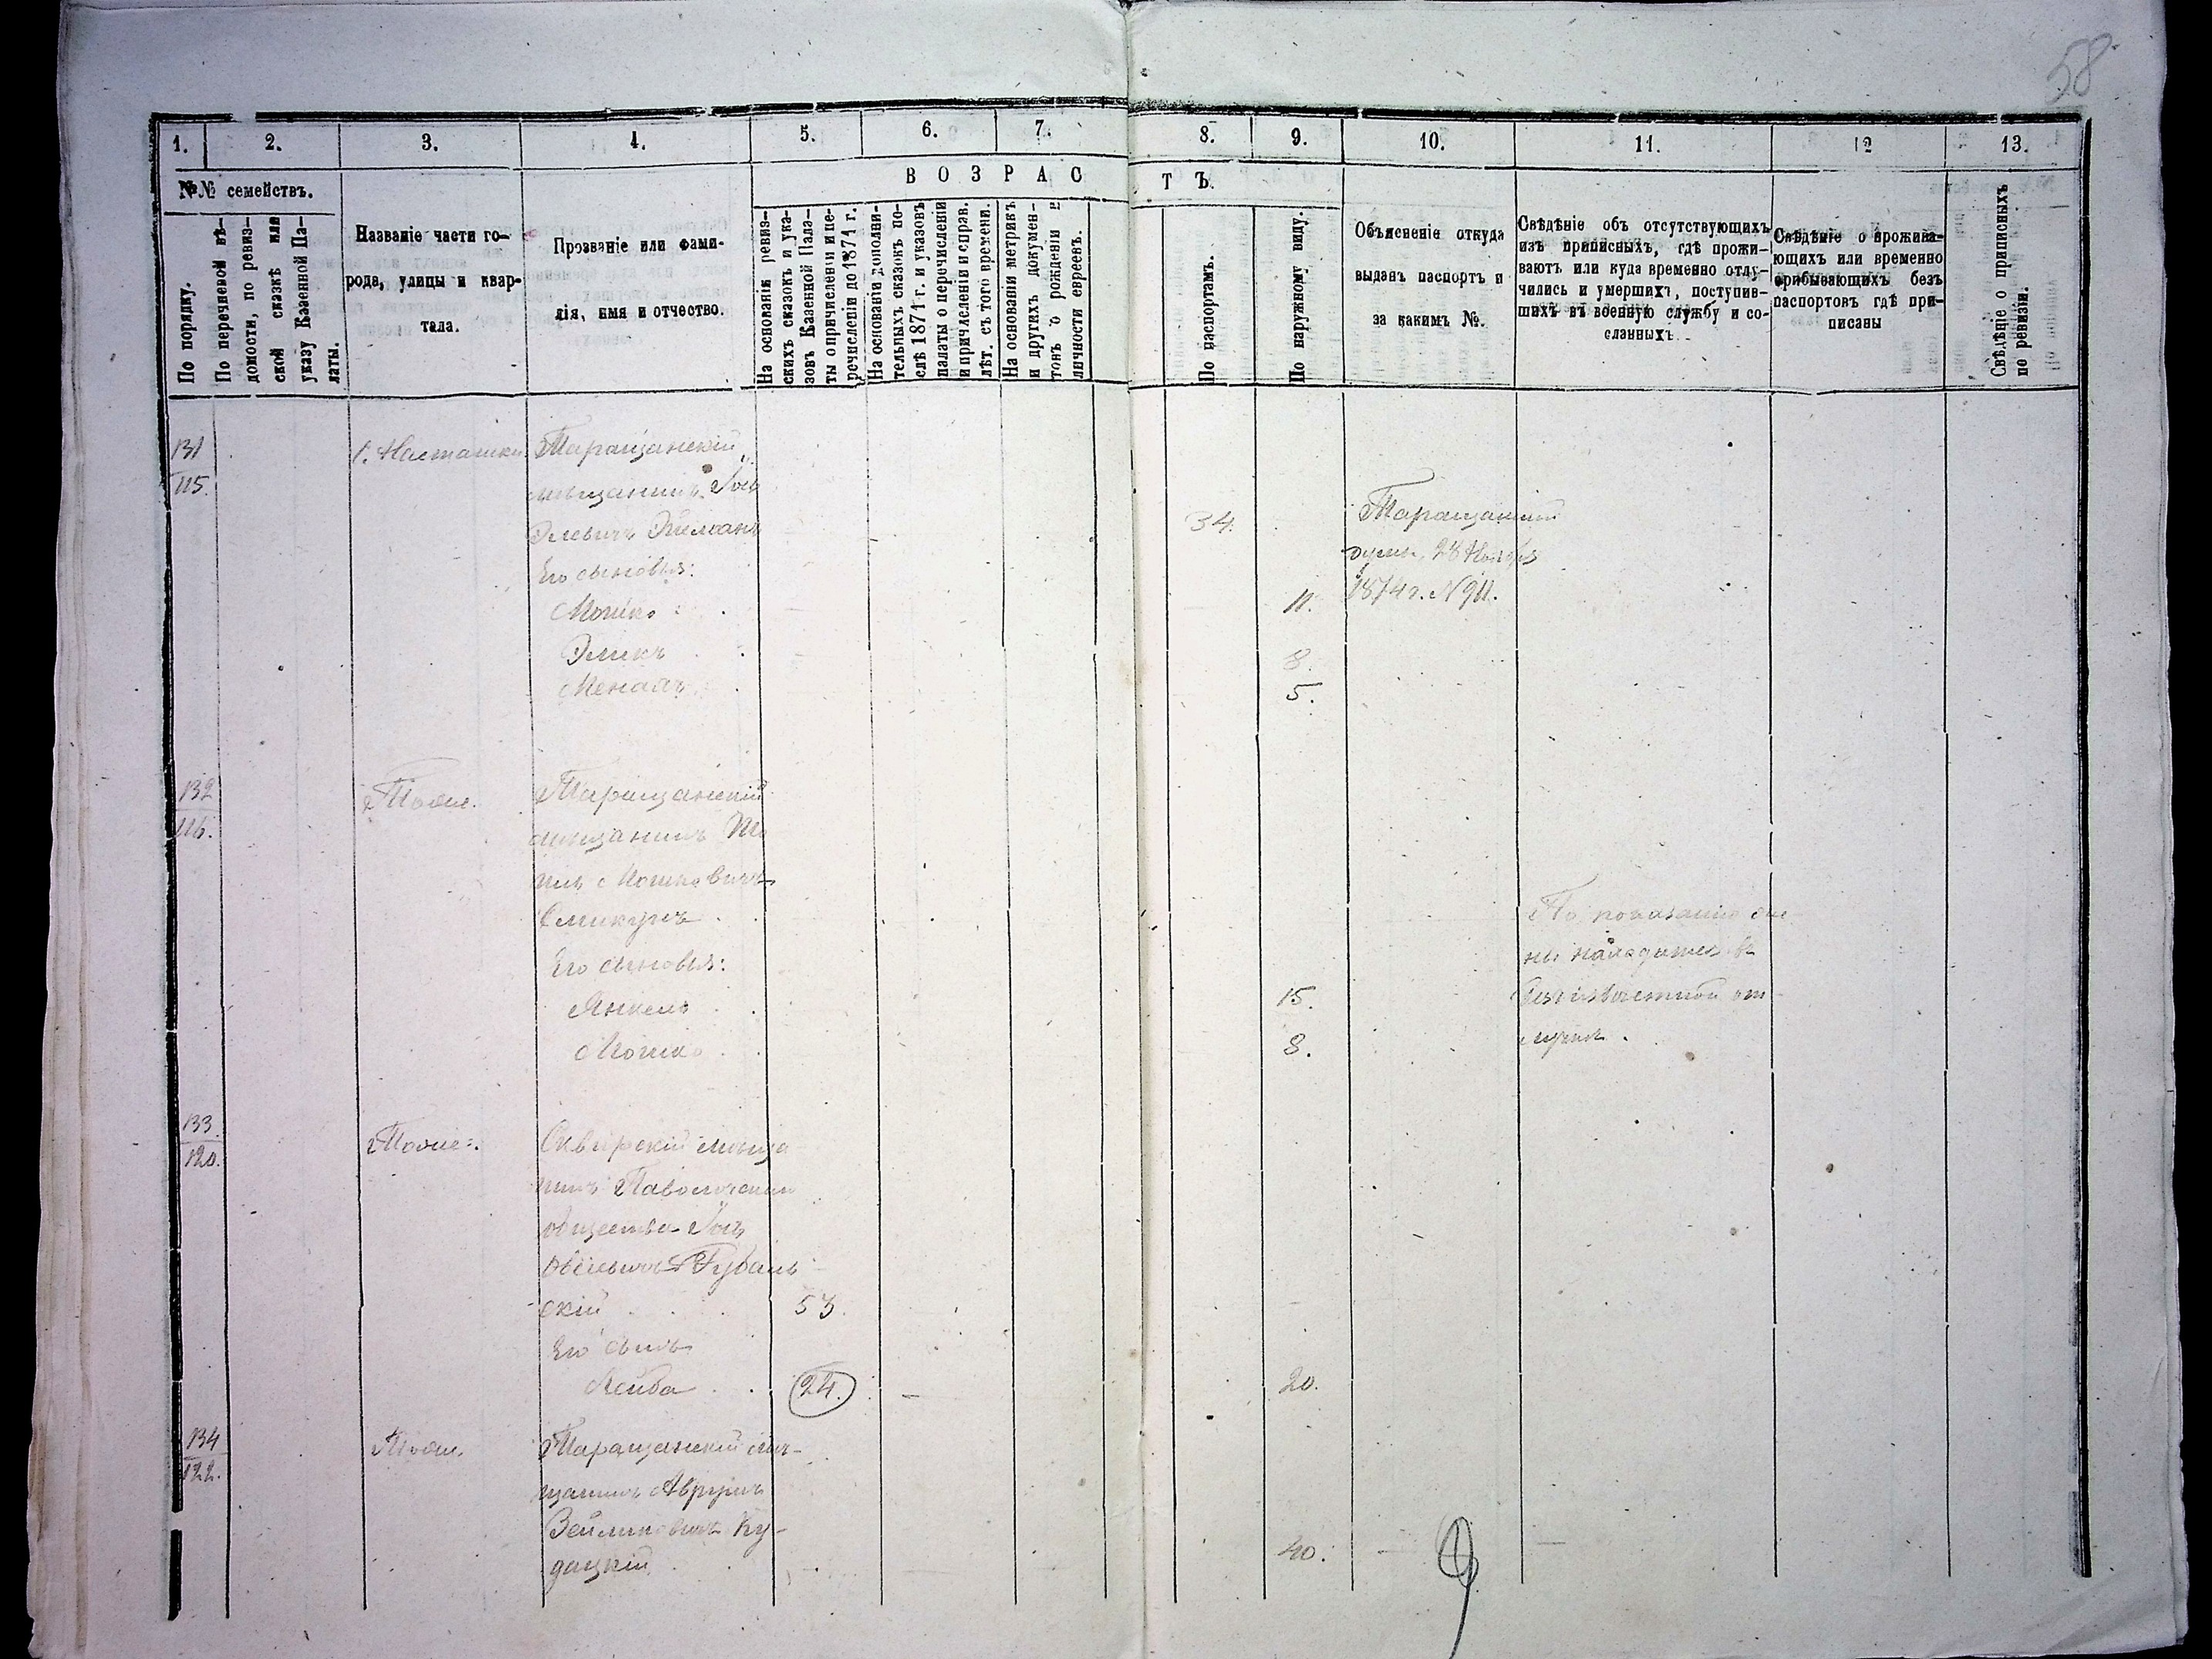 58
1. 2. 3. 4. 5. 6. 7. 8. 9. 10. 11. 12 13.
№№ семействъ.
ВОЗРАСТЪ.
По порядку.
По перечневой вѣ-
домости, по ревиз-
ской сказкѣ или
указу Казенной Па-
латы.
Названіе части го-
рода, улицы и квар-
тала.
Прозваніе или фами-
лія, имя и отчество.
На основаніи ревиз-
скихъ сказокъ и ука-
зовъ Казенной Пала-
ты о причисленіи и пе-
речисленіи до 1871 г.
На основаніи дополни-
тельныхъ сказокъ по-
слѣ 1871 г. и указовъ
палаты о перечисленіи
и причисленіи и справ.
лѣт. съ того времени.
На основаніи метрикъ
и другихъ докумен-
товъ о рожденіи и
личности евреевъ.
По паспортамъ.
По наружному виду.
Объясненіе откуда
выданъ паспортъ и
за какимъ №.
Свѣдѣніе объ отсутствующихъ
изъ приписныхъ, гдѣ прожи-
ваютъ или куда временно отлу-
чились и умершихъ, поступив-
шихъ въ военную службу и со-
сланныхъ
Свѣдѣніе о прожива-
ющихъ или временно
прибывающихъ безъ
паспортовъ гдѣ при-
писаны
Свѣдѣніе о приписныхъ
по ревизіи.
131
115.
с. Насташки
Таращанскій
мѣщанинъ
34.
Его сыновья:
Мошко 11.
Эликъ 8.
5.
Таращанской
думы 28 Ноября
1874 г. № 911.
132
116.
Тоже.
Таращанскій
мѣщанинъ
Мошковичъ
Его сыновья:
Янкель 15.
Мошко 8.
По показанію же-
ны находится въ
безизвѣстной от-
лучкѣ.
133
120.
Тоже.
Сквирскій мѣща
нинъ Паволочскаго
общества
скій 53.
Его сынъ
Лейба 24. 20.
134
122.
Тоже.
Таращанскій мѣ-
щанинъ Аврумъ
Зейликовичъ Ку-
дацкій 40.